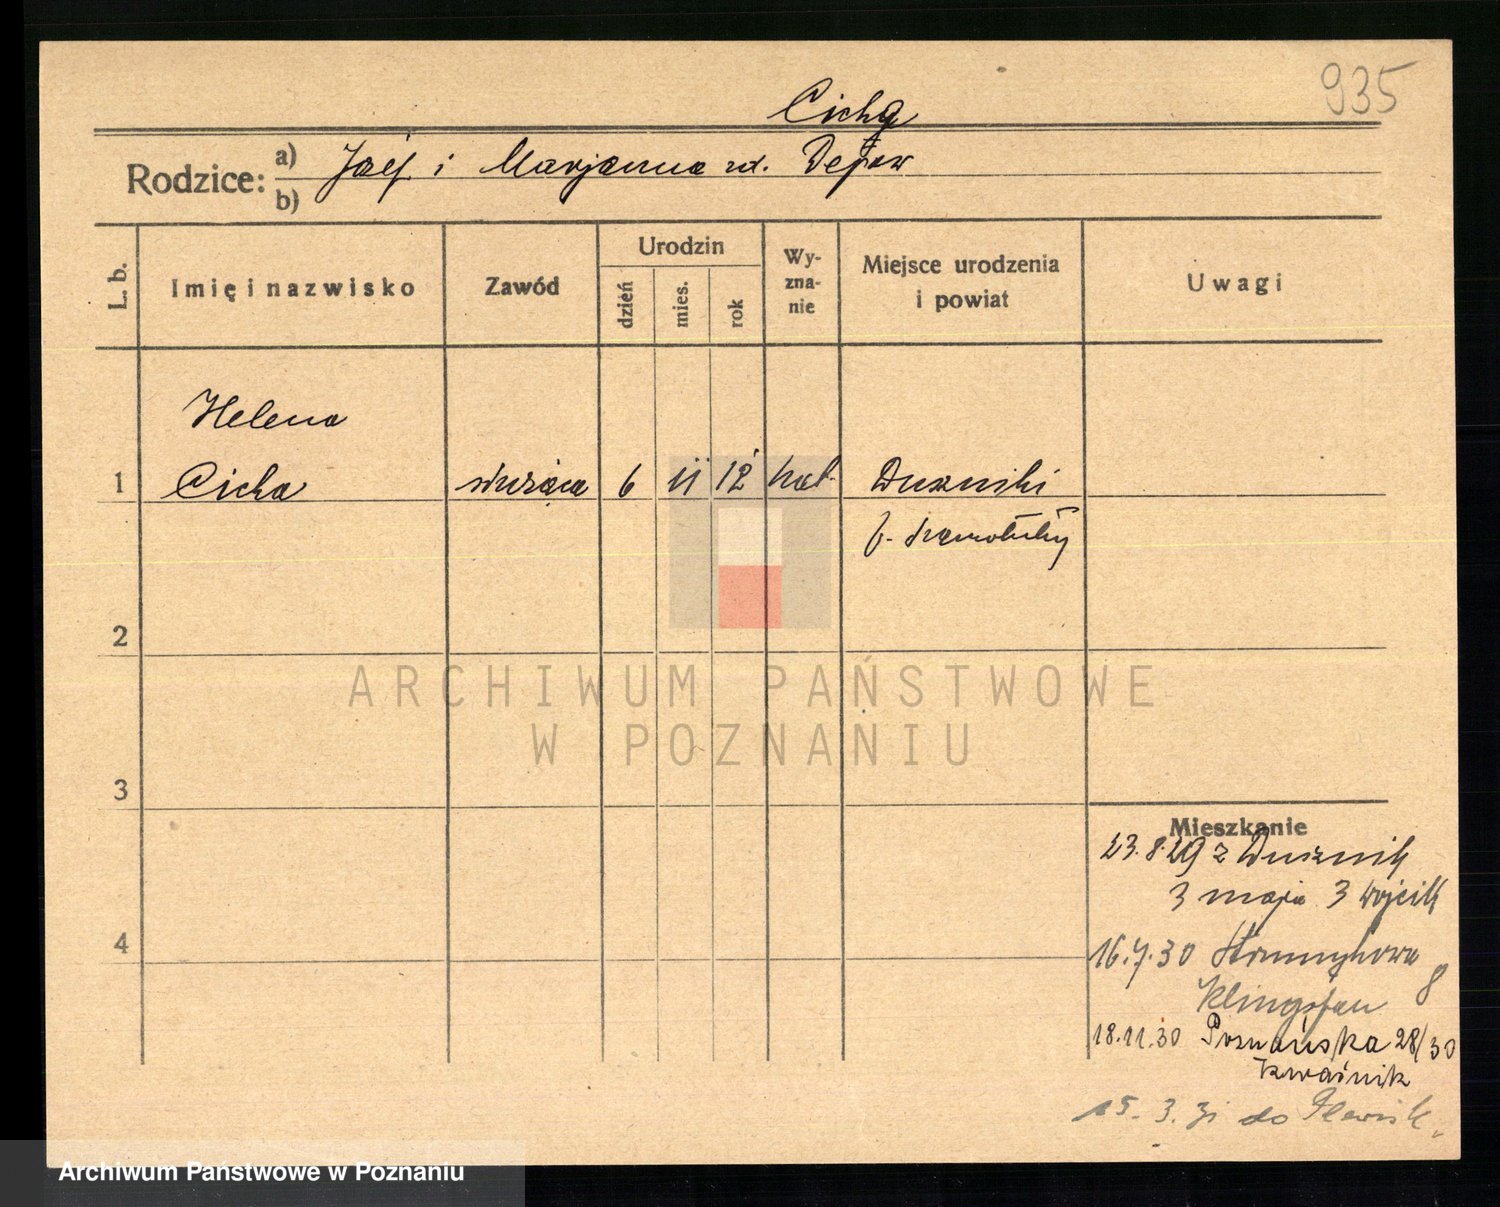 935
Cichy
Rodzice: a) Józef i Marjanna zd. Depow
b)
L. b.
Imię i nazwisko
Zawód
Urodzin
dzień
mies.
rok
Wy-
zna-
nie
Miejsce urodzenia
i powiat
Uwagi
Helena
1 Cicha służąca 6 11 12 kat. Duszniki
p. Szamotuły
2
ARCHIWUM PAŃSTWOWE
W POZNANIU
3
Mieszkanie
23.8.29 z Dusznik
3 maja 3 Wójcik
4
16.7.30 Strumykowa 8
18.11.30 Poznańska 28/30
Kwaśnik
15. 3. 31 do Plewisk.
Archiwum Państwowe w Poznaniu